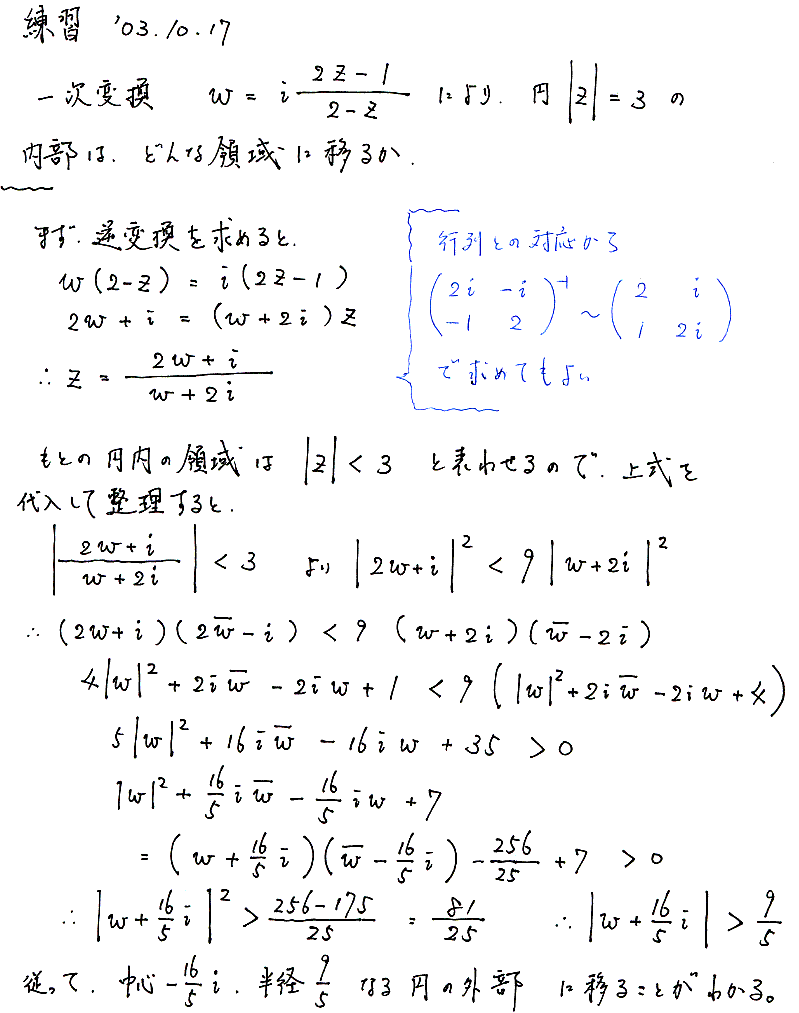 練習 '03.10.17
一次変換 w = i (2z-1)/(2-z) により. 円 |z| = 3 の
内部は. どんな領域に移るか.
まず. 逆変換を求めると.
w(2-z) = i(2z-1)
2w + i = (w+2i)z
∴ z = (2w+i)/(w+2i)
行列との対応から
(2i -i; -1 2)^{-1} ~ (2 i; 1 2i)
で求めてもよい
もとの円内の領域は |z| < 3 と表わせるので. 上式を
代入して整理すると.
|(2w+i)/(w+2i)| < 3 より |2w+i|² < 9|w+2i|²
∴ (2w+i)(2w̅-i) < 9 (w+2i)(w̅-2i)
4|w|² + 2iw̅ - 2iw + 1 < 9(|w|²+2iw̅-2iw+4)
5|w|² + 16iw̅ - 16iw + 35 > 0
|w|² + 16/5 iw̅ - 16/5 iw + 7
= (w + 16/5 i)(w̅ - 16/5 i) - 256/25 + 7 > 0
∴ |w + 16/5 i|² > (256-175)/25 = 81/25 ∴ |w + 16/5 i| > 9/5
従って. 中心 -16/5 i. 半経 9/5 なる円の外部 に移ることがわかる。